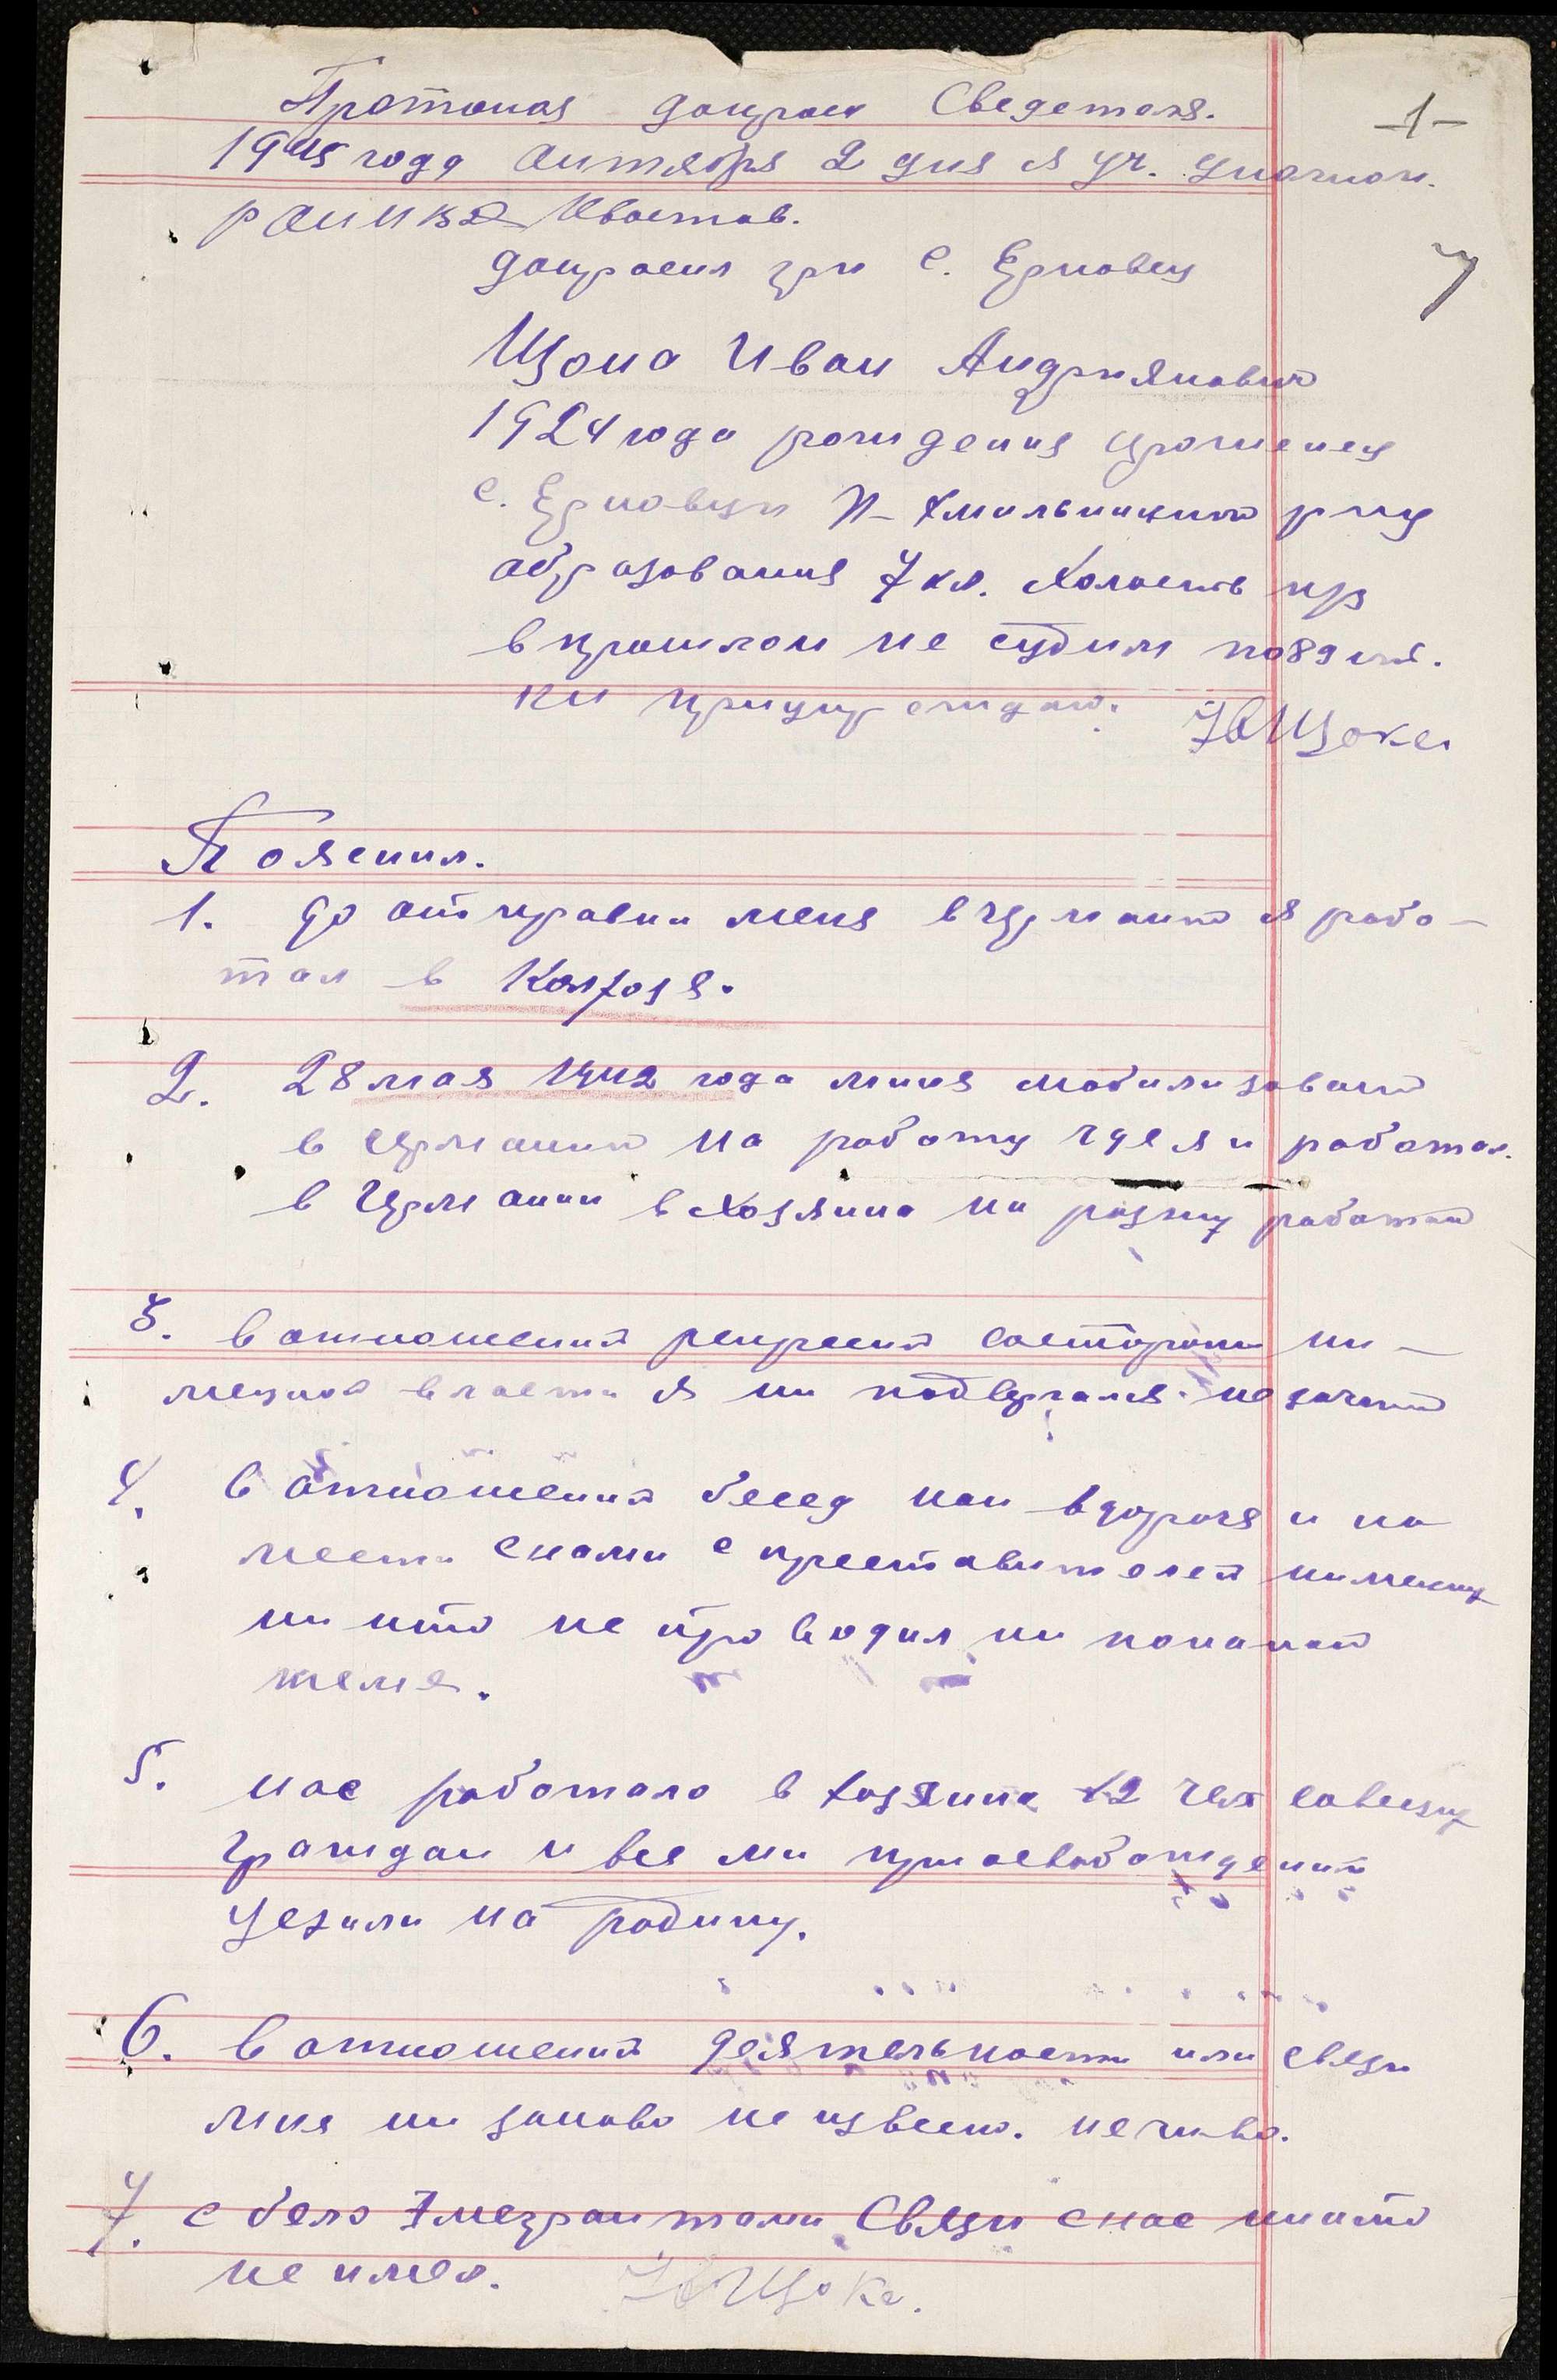 Протокол допроса Сведетеля.
-1-
1945 года октября 2 дня я уч. уполном.
РО НКВД Хвостов.
7
допросил гр-н с. Ерковец
Щока Иван Андриянович
1924 года рождения уроженец
с. Ерковци П-Хмильницкого р-ну
образования 7 кл. Холость
в прошлом не судим по 89 ст.
КК придупрежден: Щока
Пояснил.
1. до отправки меня в Германию я рабо-
тал в Колхозе.
2. 28 мая 1942 года миня мобилизовано
в Германию на работу где я и работал.
в Германии в Хозяина на разну работой
3. в отношений репресий состороны ни-
мецкой власти я ни подвергался.
4. в отношений бесед как в дороге и на
месте снами с преставителей нимецких
ни кто не проводил ни покакой
теме.
5. нас работало в хозяина 12 чел совецких
граждан и все ми при освобождений
уехали на родину.
6. в отношений деятельности или связи
миня ни законо не извесно. нечиво.
7. с бело эмегрантами Связи снас никто
не имел. Щока.